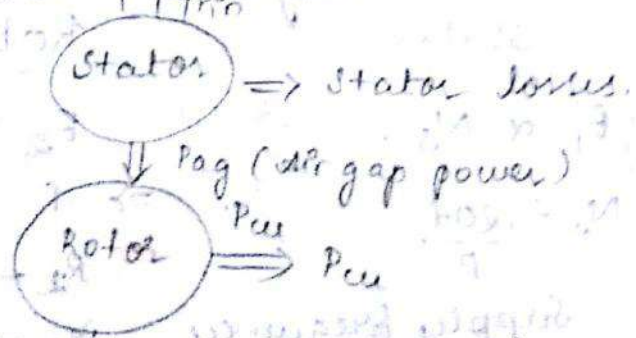 Stator ⇒ Stator losses.
Pag (Air gap power)
Pcu
Rotor ⇒ Pcu